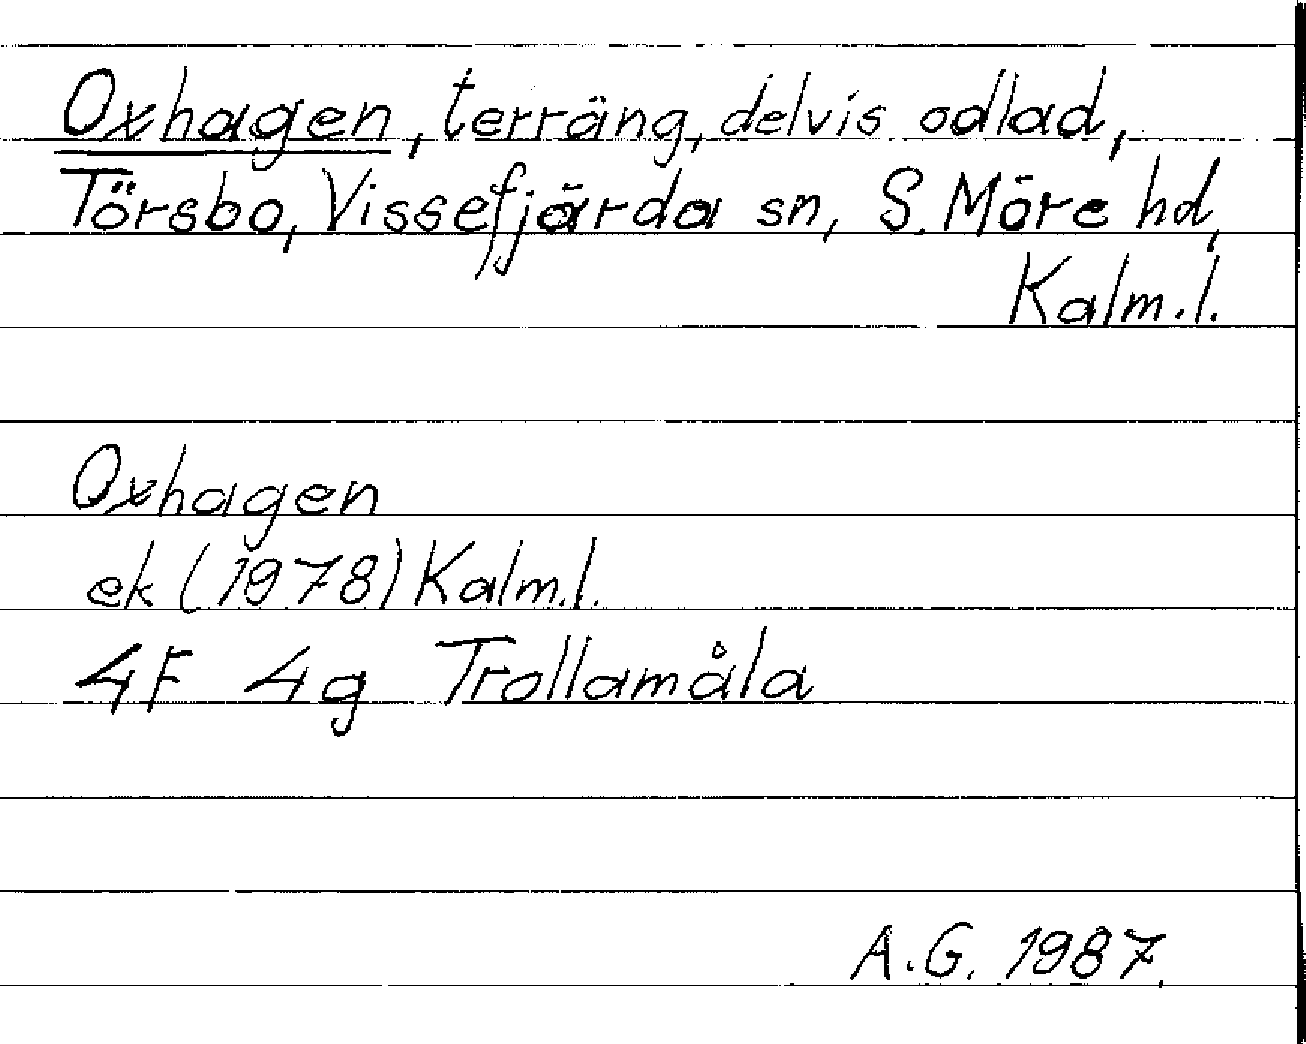 Oxhagen, terräng, delvis odlad,
Törsbo, Vissefjärda sn, S. Möre hd,
Kalm.l.
Oxhagen
ek (1978) Kalm.l.
4F 4g Trollamåla
A.G. 1987.